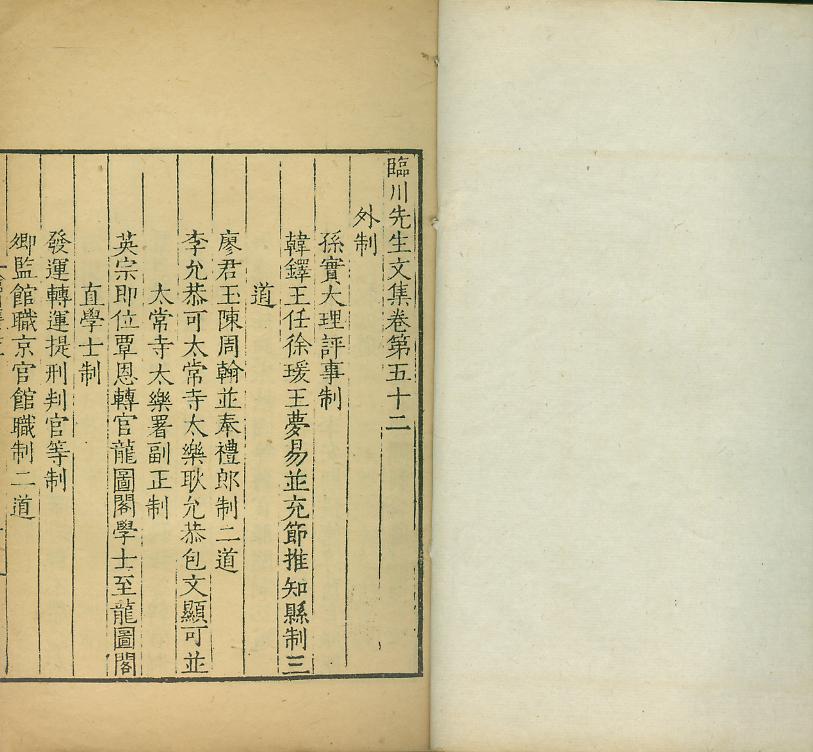 臨川先生文集卷第五十二
外制
孫實大理評事制
韓鐸王任徐瑗王夢易並充節推知縣制三
道
廖君玉陳周翰並奉禮郎制二道
李允恭可太常寺太樂耿允恭包文顯可並
太常寺太樂署副正制
英宗即位覃恩轉官龍圖閣學士至龍圖閣
直學士制
發運轉運提刑判官等制
卿監館職京官館職制二道